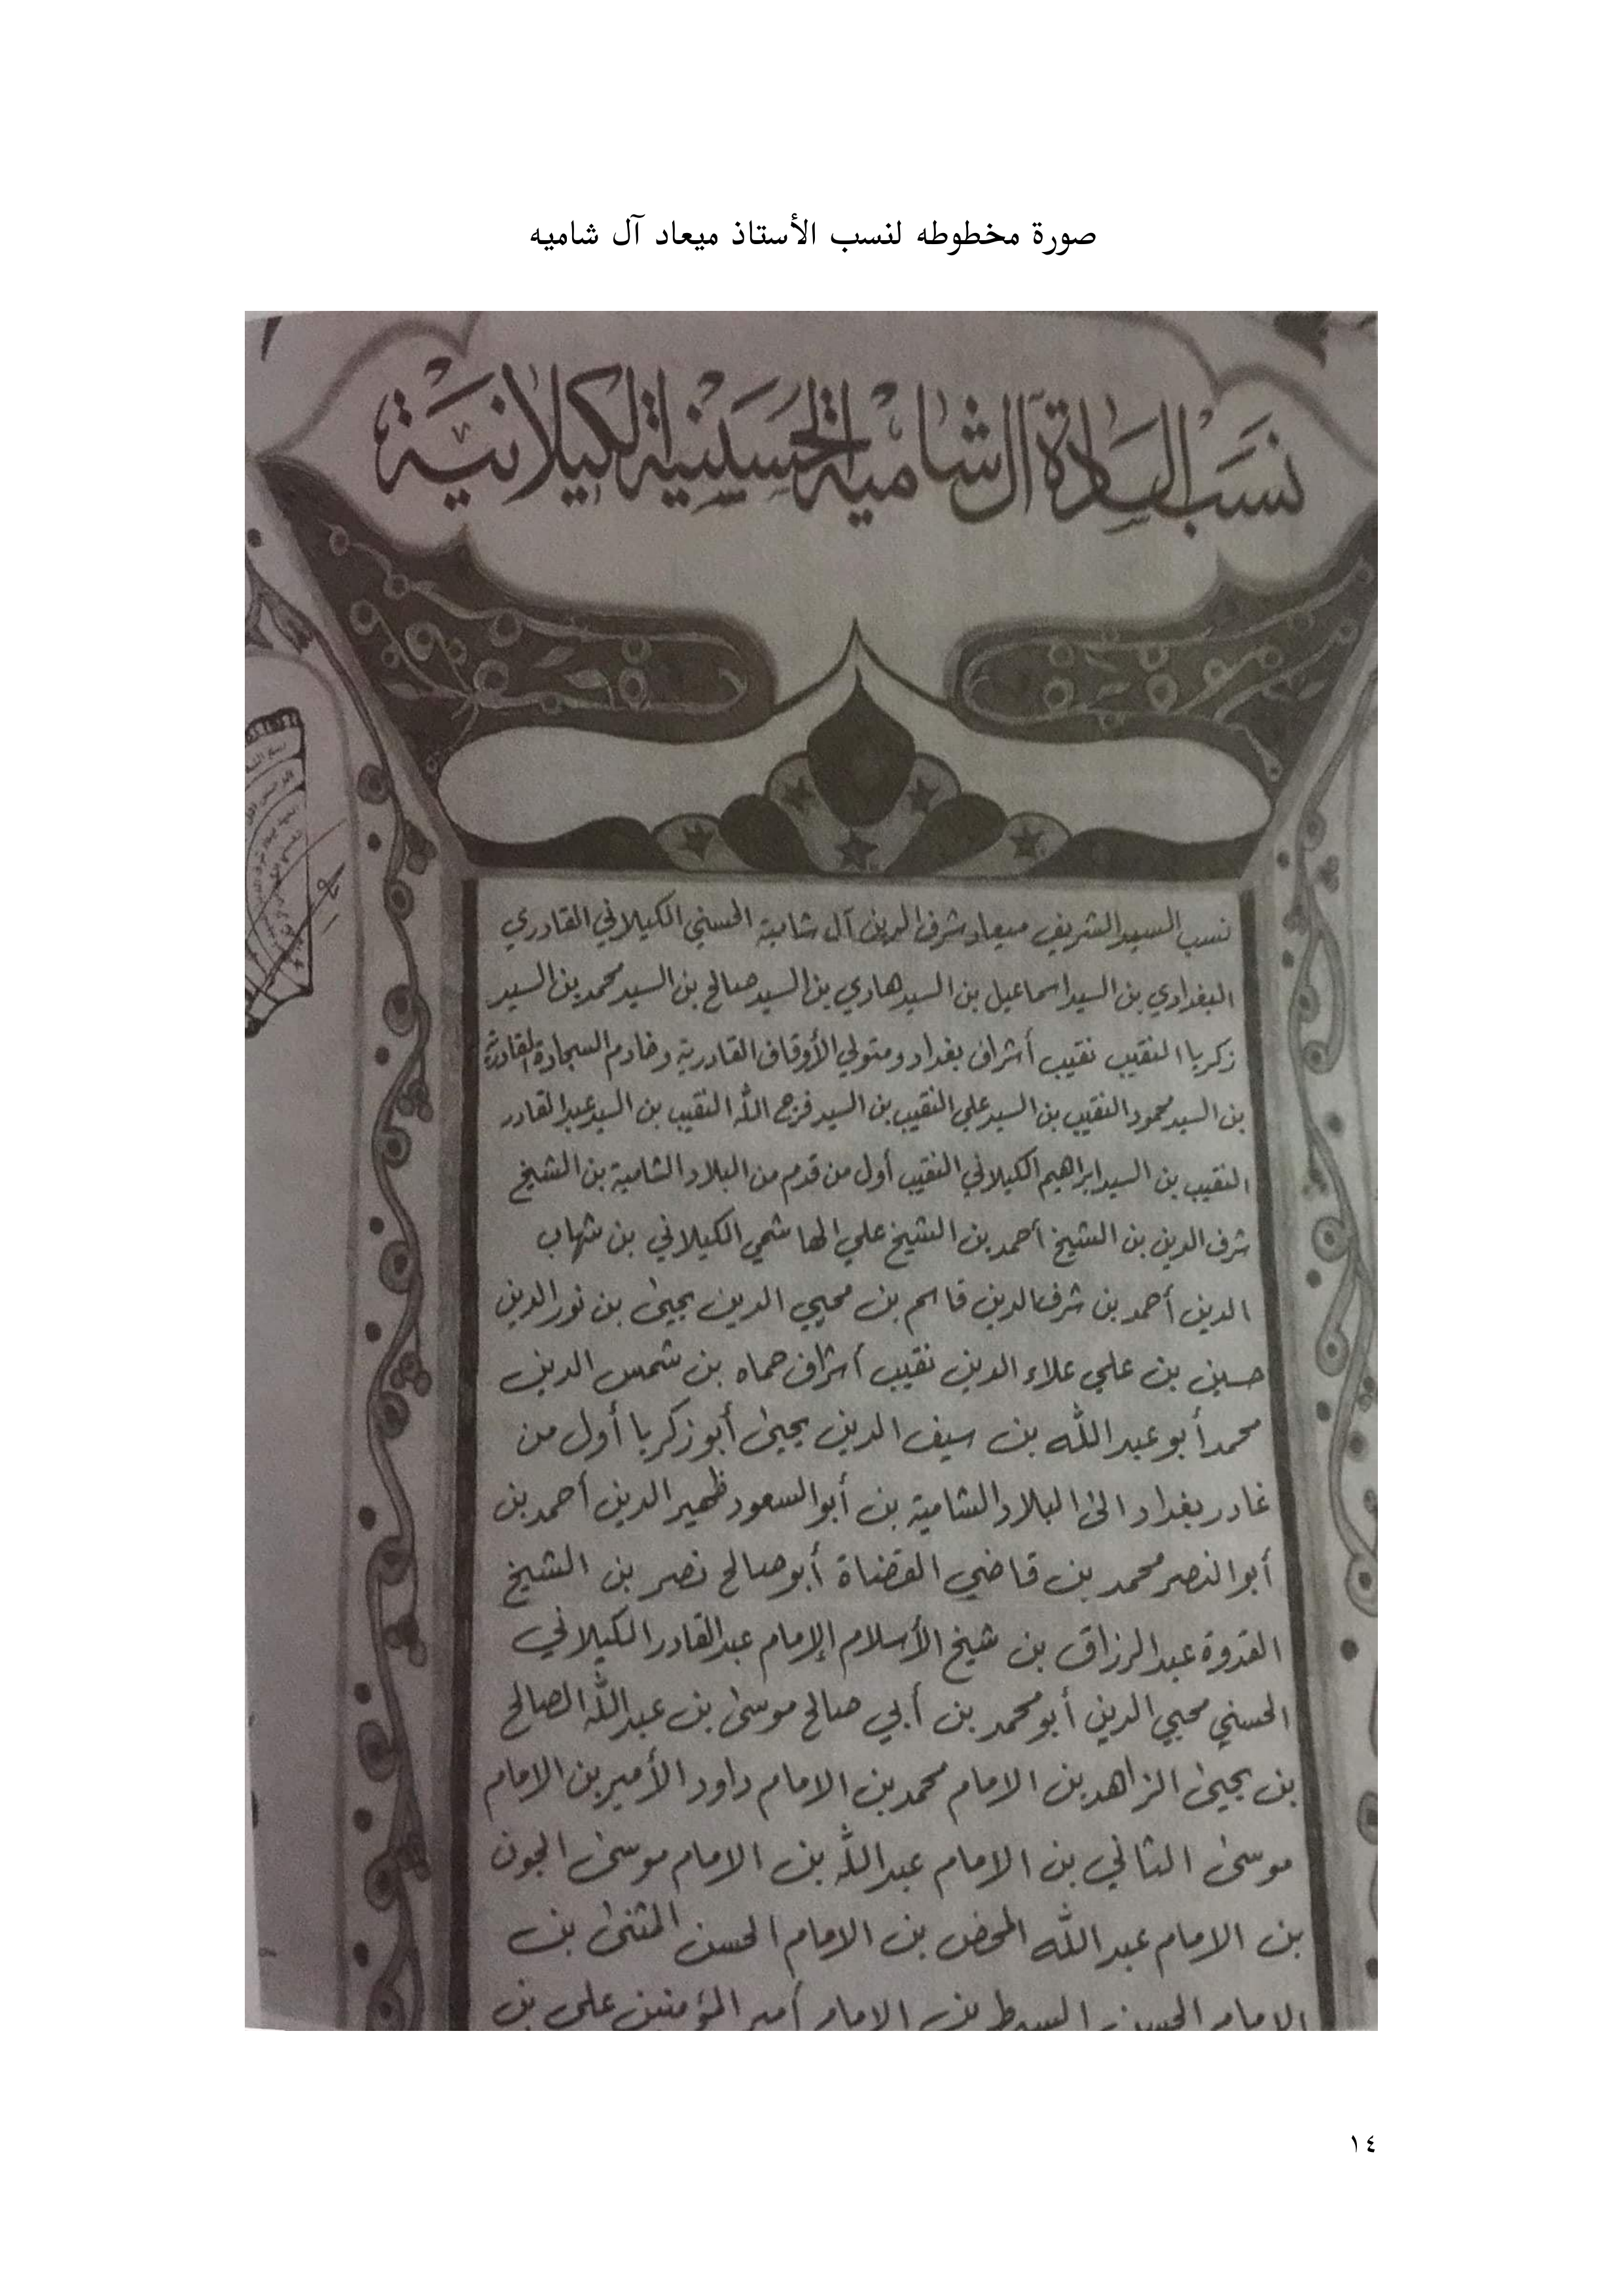 صورة مخطوطه لنسب الأستاذ ميعاد آل شاميه
نسب السادة آل شامية الحسنية الكيلانية
نسب السيد الشريف ميعاد شرف الدين آل شامية الحسني الكيلاني القادري
البغدادي بن السيد اسماعيل بن السيد هادي بن السيد صالح بن السيد محمد بن السيد
زكريا النقيب نقيب أشراف بغداد ومتولي الأوقاف القادرية وخادم السجادة القادرية
بن السيد محمود النقيب بن السيد علي النقيب بن السيد فرج الله النقيب بن السيد عبد القادر
النقيب بن السيد ابراهيم الكيلاني النقيب أول من قدم من البلاد الشامية بن الشيخ
شرف الدين بن الشيخ أحمد بن الشيخ علي الهاشمي الكيلاني بن شهاب
الدين أحمد بن شرف الدين قاسم بن محيي الدين يحيىٰ بن نور الدين
حسين بن علي علاء الدين نقيب أشراف حماه بن شمس الدين
محمد أبو عبد الله بن سيف الدين يحيىٰ أبو زكريا أول من
غادر بغداد الىٰ البلاد الشامية بن أبو السعود ظهير الدين أحمد بن
أبو النصر محمد بن قاضي القضاة أبو صالح نصر بن الشيخ
القدوة عبد الرزاق بن شيخ الأسلام الإمام عبد القادر الكيلاني
الحسني محيي الدين أبو محمد بن أبي صالح موسىٰ بن عبد الله الصالح
بن يحيىٰ الزاهد بن الامام محمد بن الامام داود الأمير بن الامام
موسىٰ الثاني بن الامام عبد الله بن الامام موسىٰ الجون
بن الامام عبد الله المحض بن الامام الحسن المثنىٰ بن
الامام الحسن السبط بن الامام أمير المؤمنين علي بن
١٤